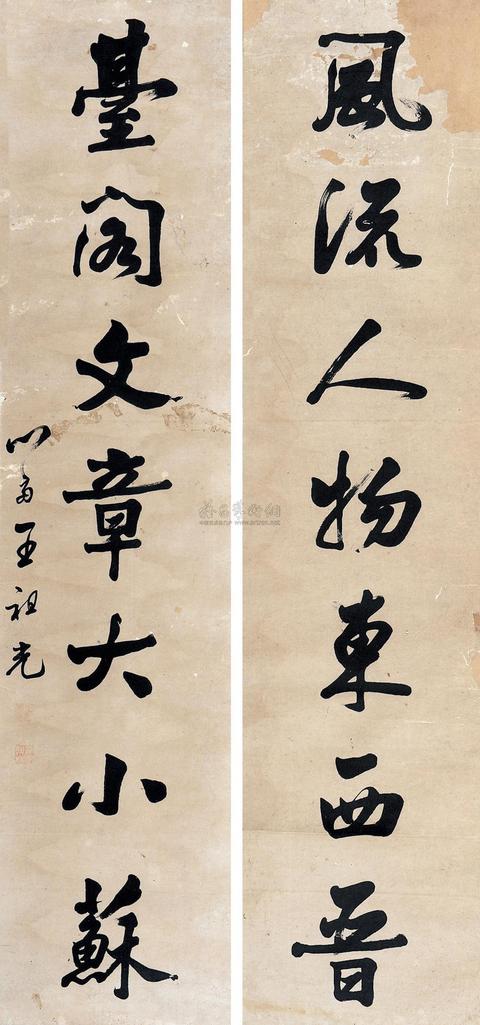 風流人物東西晉
臺閣文章大小蘇
王祖光